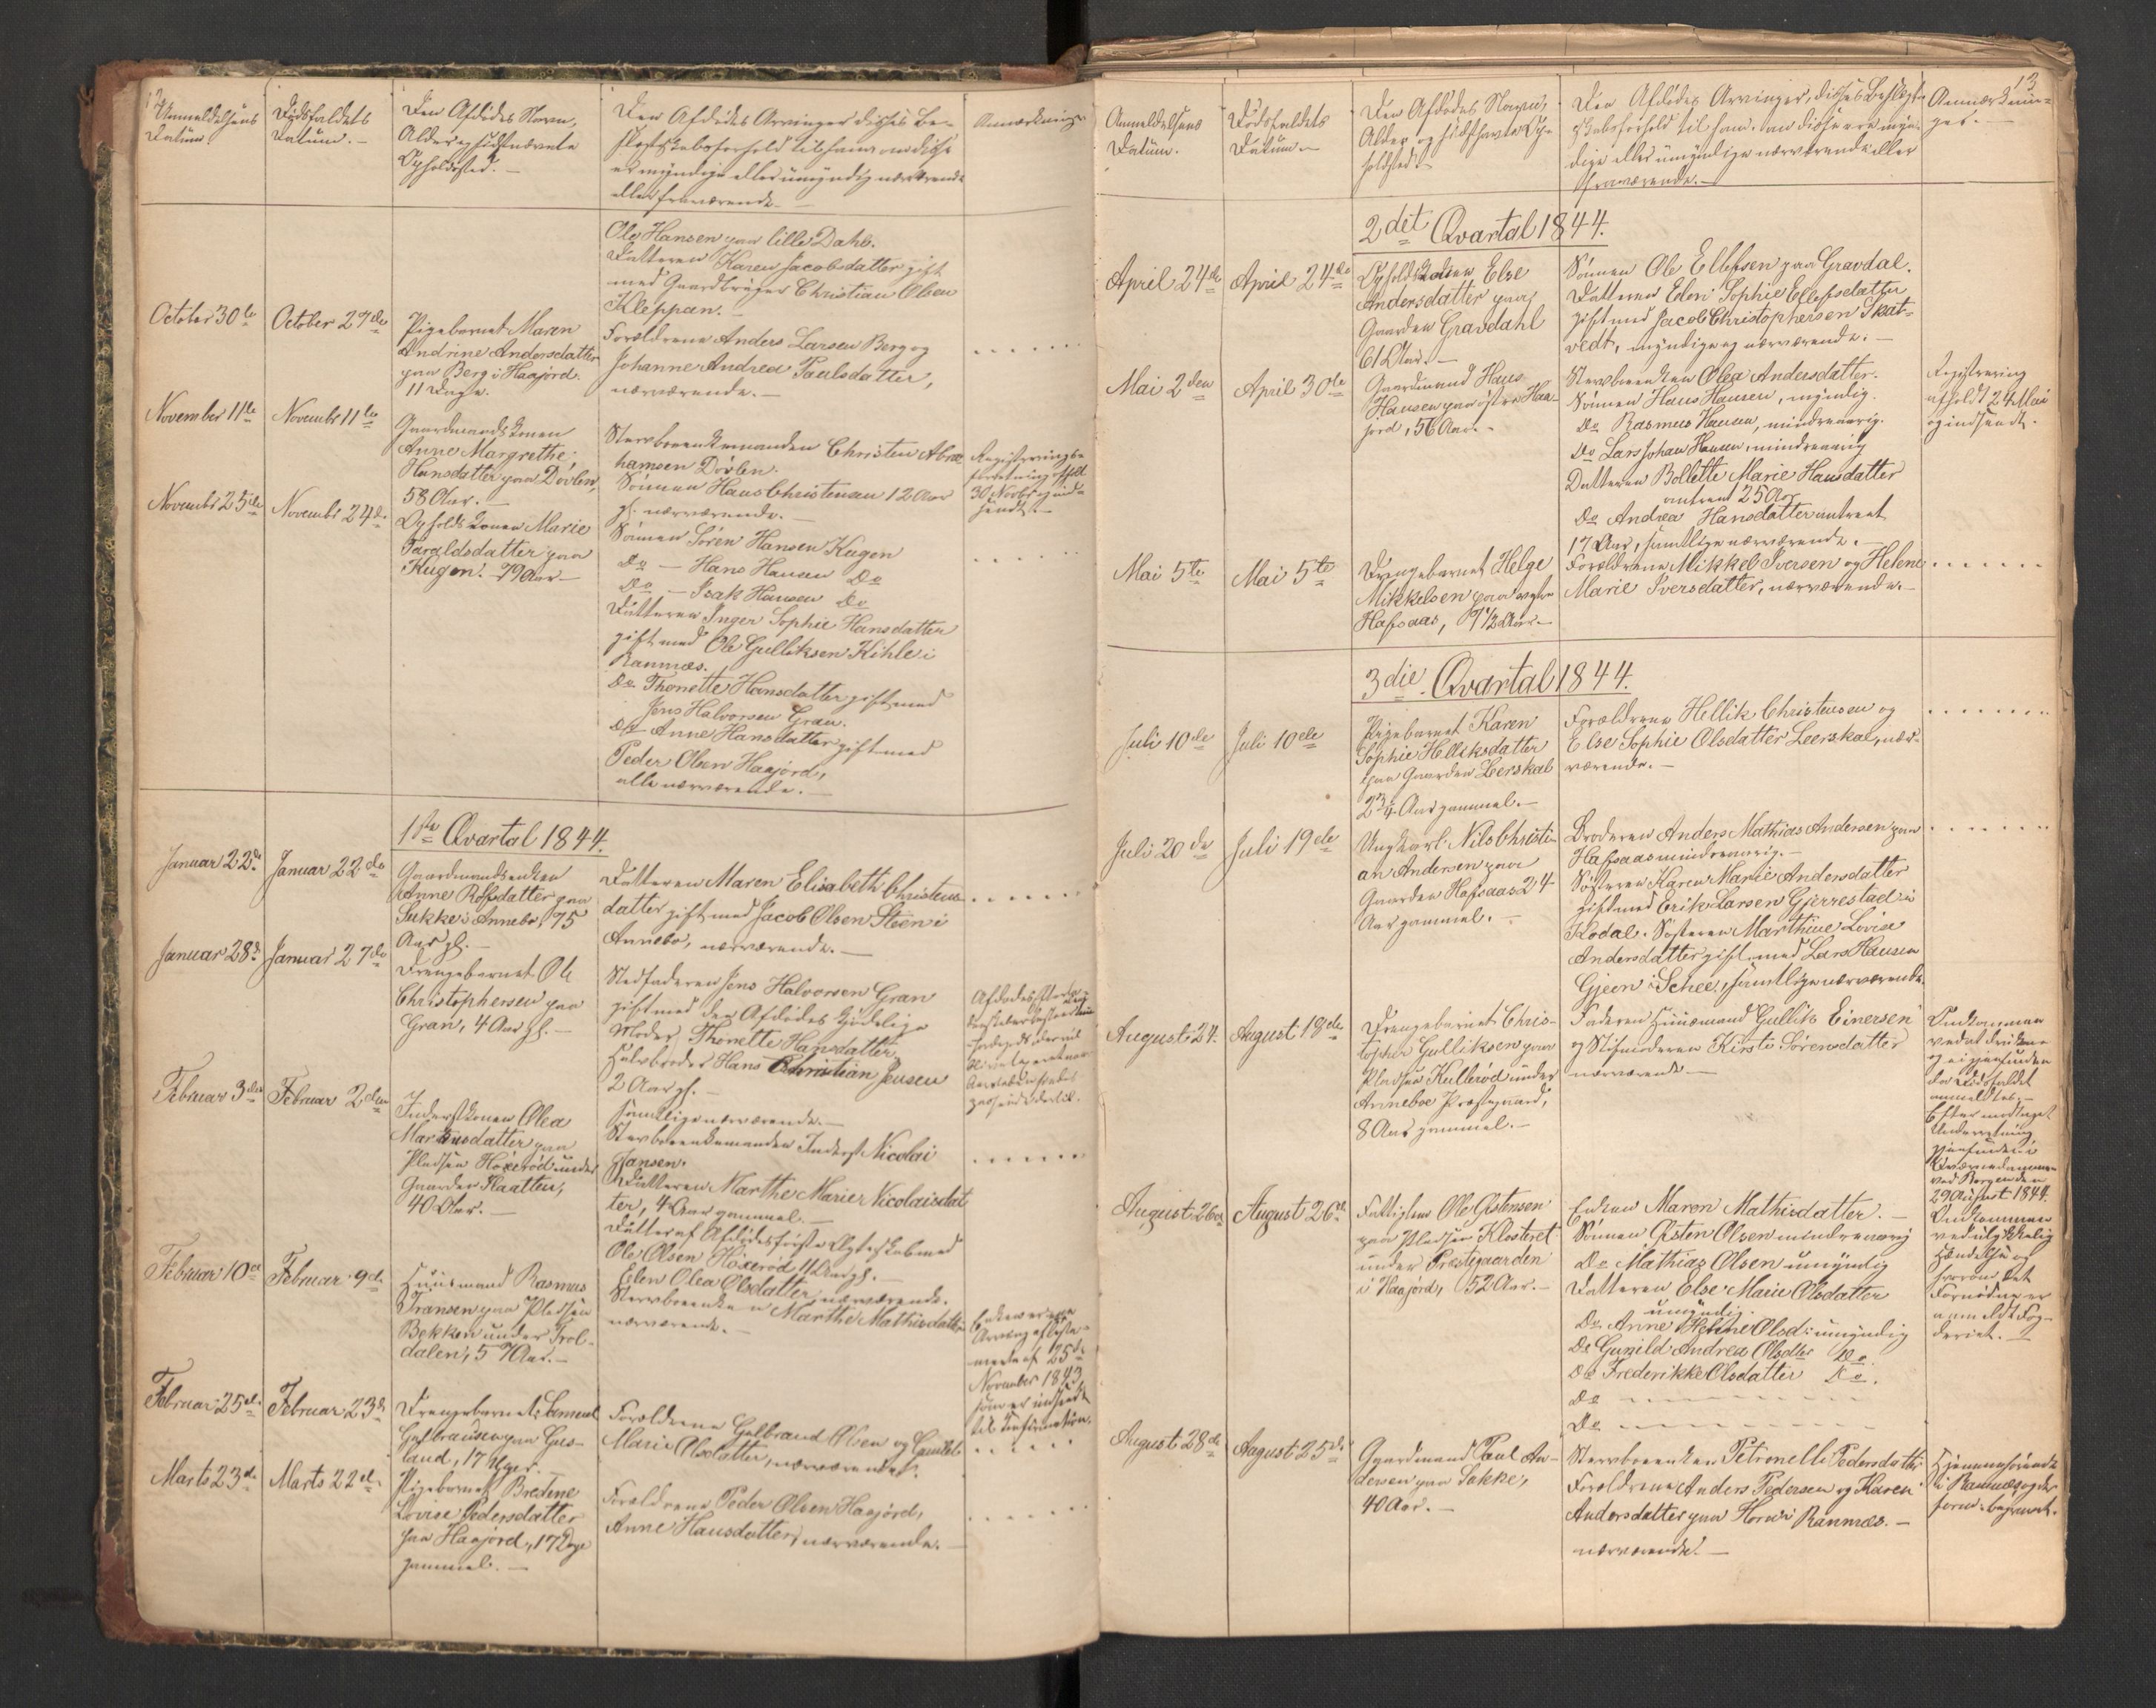 12
Anmeldelsens
Datum.
Dødsfaldets
Datum. –
Den Afdødes Navn,
Alder og sidst nævnte
Opholdssted. –
Den Afdødes Arvinger disses Be-
slægtskabsforhold til ham om disse
er myndige eller umyndig nærværende
eller fraværende. –
Anmærkninger
Ole Hansen paa lille Dahl.
Datteren Karen Jacobsdatter gift
med Gaardbruger Christian Olsen
Kleppan. –
October 30te
October 27de
Pigebarnet Maren
Andrine Andersdatter
paa Berg i Haajord.
11 Dage.
Forældrene Anders Larsen Berg og
Johanne Andrea Paulsdatter,
nærværende. –
. . . . . .
November 11te
Novembr 11te
Gaardmandskonen
Anne Margrethe
Hansdatter paa Dovlen,
58 Aar. –
Stervboenkemanden Christen Abra-
hamsen Dovlen.
Sønnen Hans Christensen 12 Aar
gl. nærværende. –
Registrerings-
forretning afholdt
30 Novbr og ind-
sendt. –
Novembr 25de
Novembr 24de
Opholdskonen Marie
Taraldsdatter paa
Kugen. 79 Aar –
Sønnen Søren Hansen Kugen
Do – Hans Hansen Do
Do – Isak Hansen Do
Datteren Inger Sophie Hansdatter
gift med Ole Gulliksen Kihle i
Ramnæs.
Do Thonette Hansdatter gift med
Jens Halvorsen Gran.
Do Anne Hansdatter gift med
Peder Olsen Haajord,
alle nærværende. –
. . . . . .
1ste Qvartal 1844.
Januar 22de
Januar 22de
Gaardmandsenken
Anne Rolfsdatter paa
Sukke i Annebo, 75
Aar gl. –
Datteren Maren Elisabeth Christens-
datter gift med Jacob Olsen Steen i
Annebo, nærværende. –
. . . . . .
Januar 28de
Januar 27de
Drengebarnet Ole
Christophersen paa
Gran, 4 Aar gl. –
Stedfaderen Jens Halvorsen Gran
gift med den Afdødes kjødelige
Moder Thonette Hansdatter,
Halvbroder Hans Christian Jensen
2 Aar gl. –
samtlige nærværende. –
Februar 3die
Februar 2den
Inderstkonen Olea
Martinusdatter paa
Pladsen Hoxerød under
Gaarden Flaatten,
40 Aar. –
Stervboenkemanden Inderst Nicolai
Jansen.
Datteren Marthe Marie Nicolaisdat-
ter, 4 Aar gammel. –
Datter af Afdødes første Ægteskab med
Ole Olsen Hoxerød 11 Aar gl. –
Elen Olea Olsdatter, nærværende.
. . . . . .
Februar 10de
Februar 9de
Huusmand Rasmus
Fransen paa Pladsen
Bekken under Trol-
dalen, 57 Aar. –
Stervboenken Marthe Mathisdatter
nærværende. –
Enken er
Arving efter Testa-
mente af 25de
November 1843
som er indsendt
til Confirmation.
Februar 25de
Februar 23de
Drengebarnet Samuel
Gulbrandsen paa Gus-
land, 17 Uger.
Forældrene Gulbrand Olsen og Gunild
Marie Olsdatter, nærværende.
. . . . . .
Marts 23de
Marts 22de
Pigebarnet Bredine
Lovise Pedersdatter
paa Haajord, 17 Dage
gammel. –
Forældrene Peder Olsen Haajord,
Anne Hansdatter, nærværende. –
. . . . . .
13
Anmeldelsens
Datum.
Dødsfaldets
Datum. –
Den Afdødes Navn,
Alder og sidst havte Op-
holdsted. –
Den Afdødes Arvinger, disses Beslægt-
skabsforhold til ham, om disse ere myn-
dige eller umyndige nærværende eller
fraværende. –
Anmærknin-
ger. –
2det Qvartal 1844.
April 24de
April 24de
Opholdskonen Else
Andersdatter paa
Gaarden Gravdahl
61 Aar. –
Sønnen Ole Ellefsen paa Gravdal.
Datteren Edeni Sophie Ellefsdatter
gift med Jacob Christophersen Skat-
vedt, myndige og nærværende. –
Mai 2den
April 30te
Gaardmand Hans
Hansen paa østre Haa-
jord, 56 Aar. –
Stervboenken Olea Andersdatter.
Sønnen Hans Hansen, myndig.
Do Rasmus Hansen, mindreaarig.
Do Lars Johan Hansen, mindreaarig
Datteren Bollette Marie Hansdatter
omtrent 25 Aar
Do Andrea Hansdatter omtrent
17 Aar, samtlige nærværende. –
Registrering
afholdt 24 Mai
og indsendt.
Mai 5te
Mai 5te
Drengebarnet Helge
Mikkelsen paa søndre
Hafsaas, 7 1/2 Aar –
Forældrene Mikkel Iversen og Helene
Marie Iversdatter, nærværende. –
. . . . . . .
3die Qvartal 1844.
Juli 10de
Juli 10de
Pigebarnet Karen
Sophie Helliksdatter
paa Gaarden Leerskal
2 3/4 Aar gammel. –
Forældrene Hellik Christensen og
Else Sophie Olsdatter Leerskal, nær-
værende. –
. . . . . . .
Juli 20de
Juli 19de
Ungkarl Nils Christi-
an Andersen paa
Gaarden Hafsaas 24
Aar gammel. –
Broderen Anders Mathias Andersen paa
Hafsaas mindreaarig. –
Søsteren Karen Marie Andersdatter
gift med Erik Larsen Gjerrestad i
Kodal. Søsteren Marthine Lovise
Andersdatter gift med Lars Hansen
Gjeen i Schee, samtlige nærværende.
. . . . . . .
August 24.
August 18de
Drengebarnet Chris-
topher Gulliksen paa
Pladsen Kullerød under
Anneboe Præstegaard,
8 Aar gammel. –
Faderen Huusmand Gullik Einersen
og Stifmoderen Kirsti Sørensdatter
nærværende –
Omkommen
ved at drukne
og ei gjenfunden
da Dødsfaldet
anmeldtes. –
Efter modtaget
Underretning
gjenfunden i
ved Borgen den
29 August 1844.
August 26de
August 26de
Fattiglem Ole Gistensen
paa Pladsen Klosteret
under Præstegaarden
i Haajord, 52 Aar. –
Enken Maren Mathisdatter. –
Sønnen Gisten Olsen mindreaarig
Do Mathias Olsen umyndig
Datteren Else Marie Olsdatter
umyndig.
Do Anne Helene Olsd: umyndig
Do Gunild Andrea Olsdtr Do.
Do Frederikke Olsdatter Do.
Do – – – – – –
Do – – – – – –
Omkommen
ved ulykkelig
Hændelse og
hvorom det
Fornødne er
anmeldt Fog-
deriet. –
August 28de
August 25de
Gaardmand Paul An-
dersen paa Sukke,
40 Aar. –
Stervboenken Petronelle Pedersdatter
Forældrene Anders Pedersen og Karen
Andersdatter paa Horn i Ramnæs. –
nærværende. –
Hjemmehørende
i Ramnæs og der-
begravet.